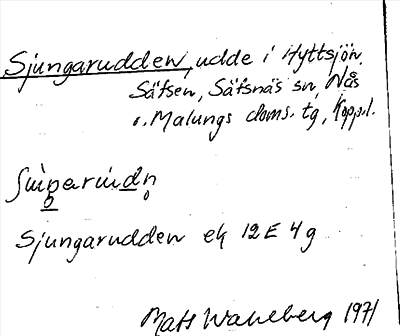 Sjungarudden, udde i Hyttsjön,
Säfsen, Säfsnäs sn, Nås
o. Malungs doms. tg, Kopp.l.
Sjungarudden ek 12E 4g
Mats Wahlberg 1971